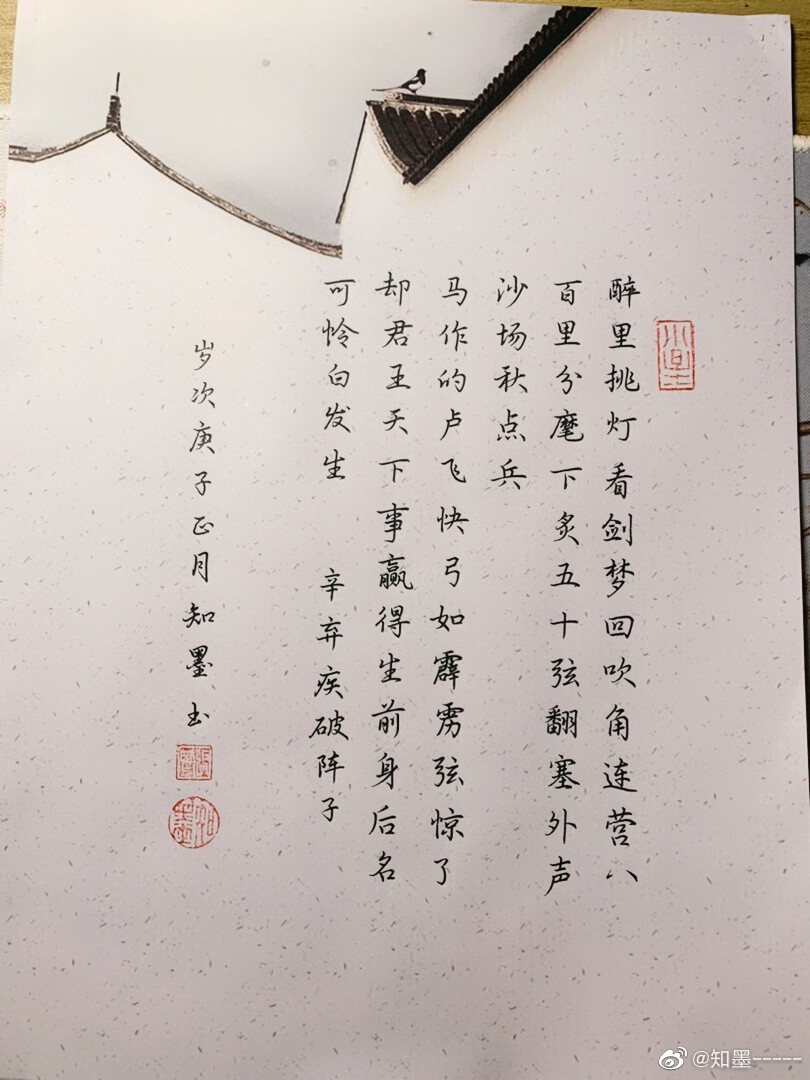 醉里挑灯看剑梦回吹角连营八
百里分麾下炙五十弦翻塞外声
沙场秋点兵
马作的卢飞快弓如霹雳弦惊了
却君王天下事赢得生前身后名
可怜白发生 辛弃疾破阵子
岁次庚子正月知墨书
知墨
@知墨-----